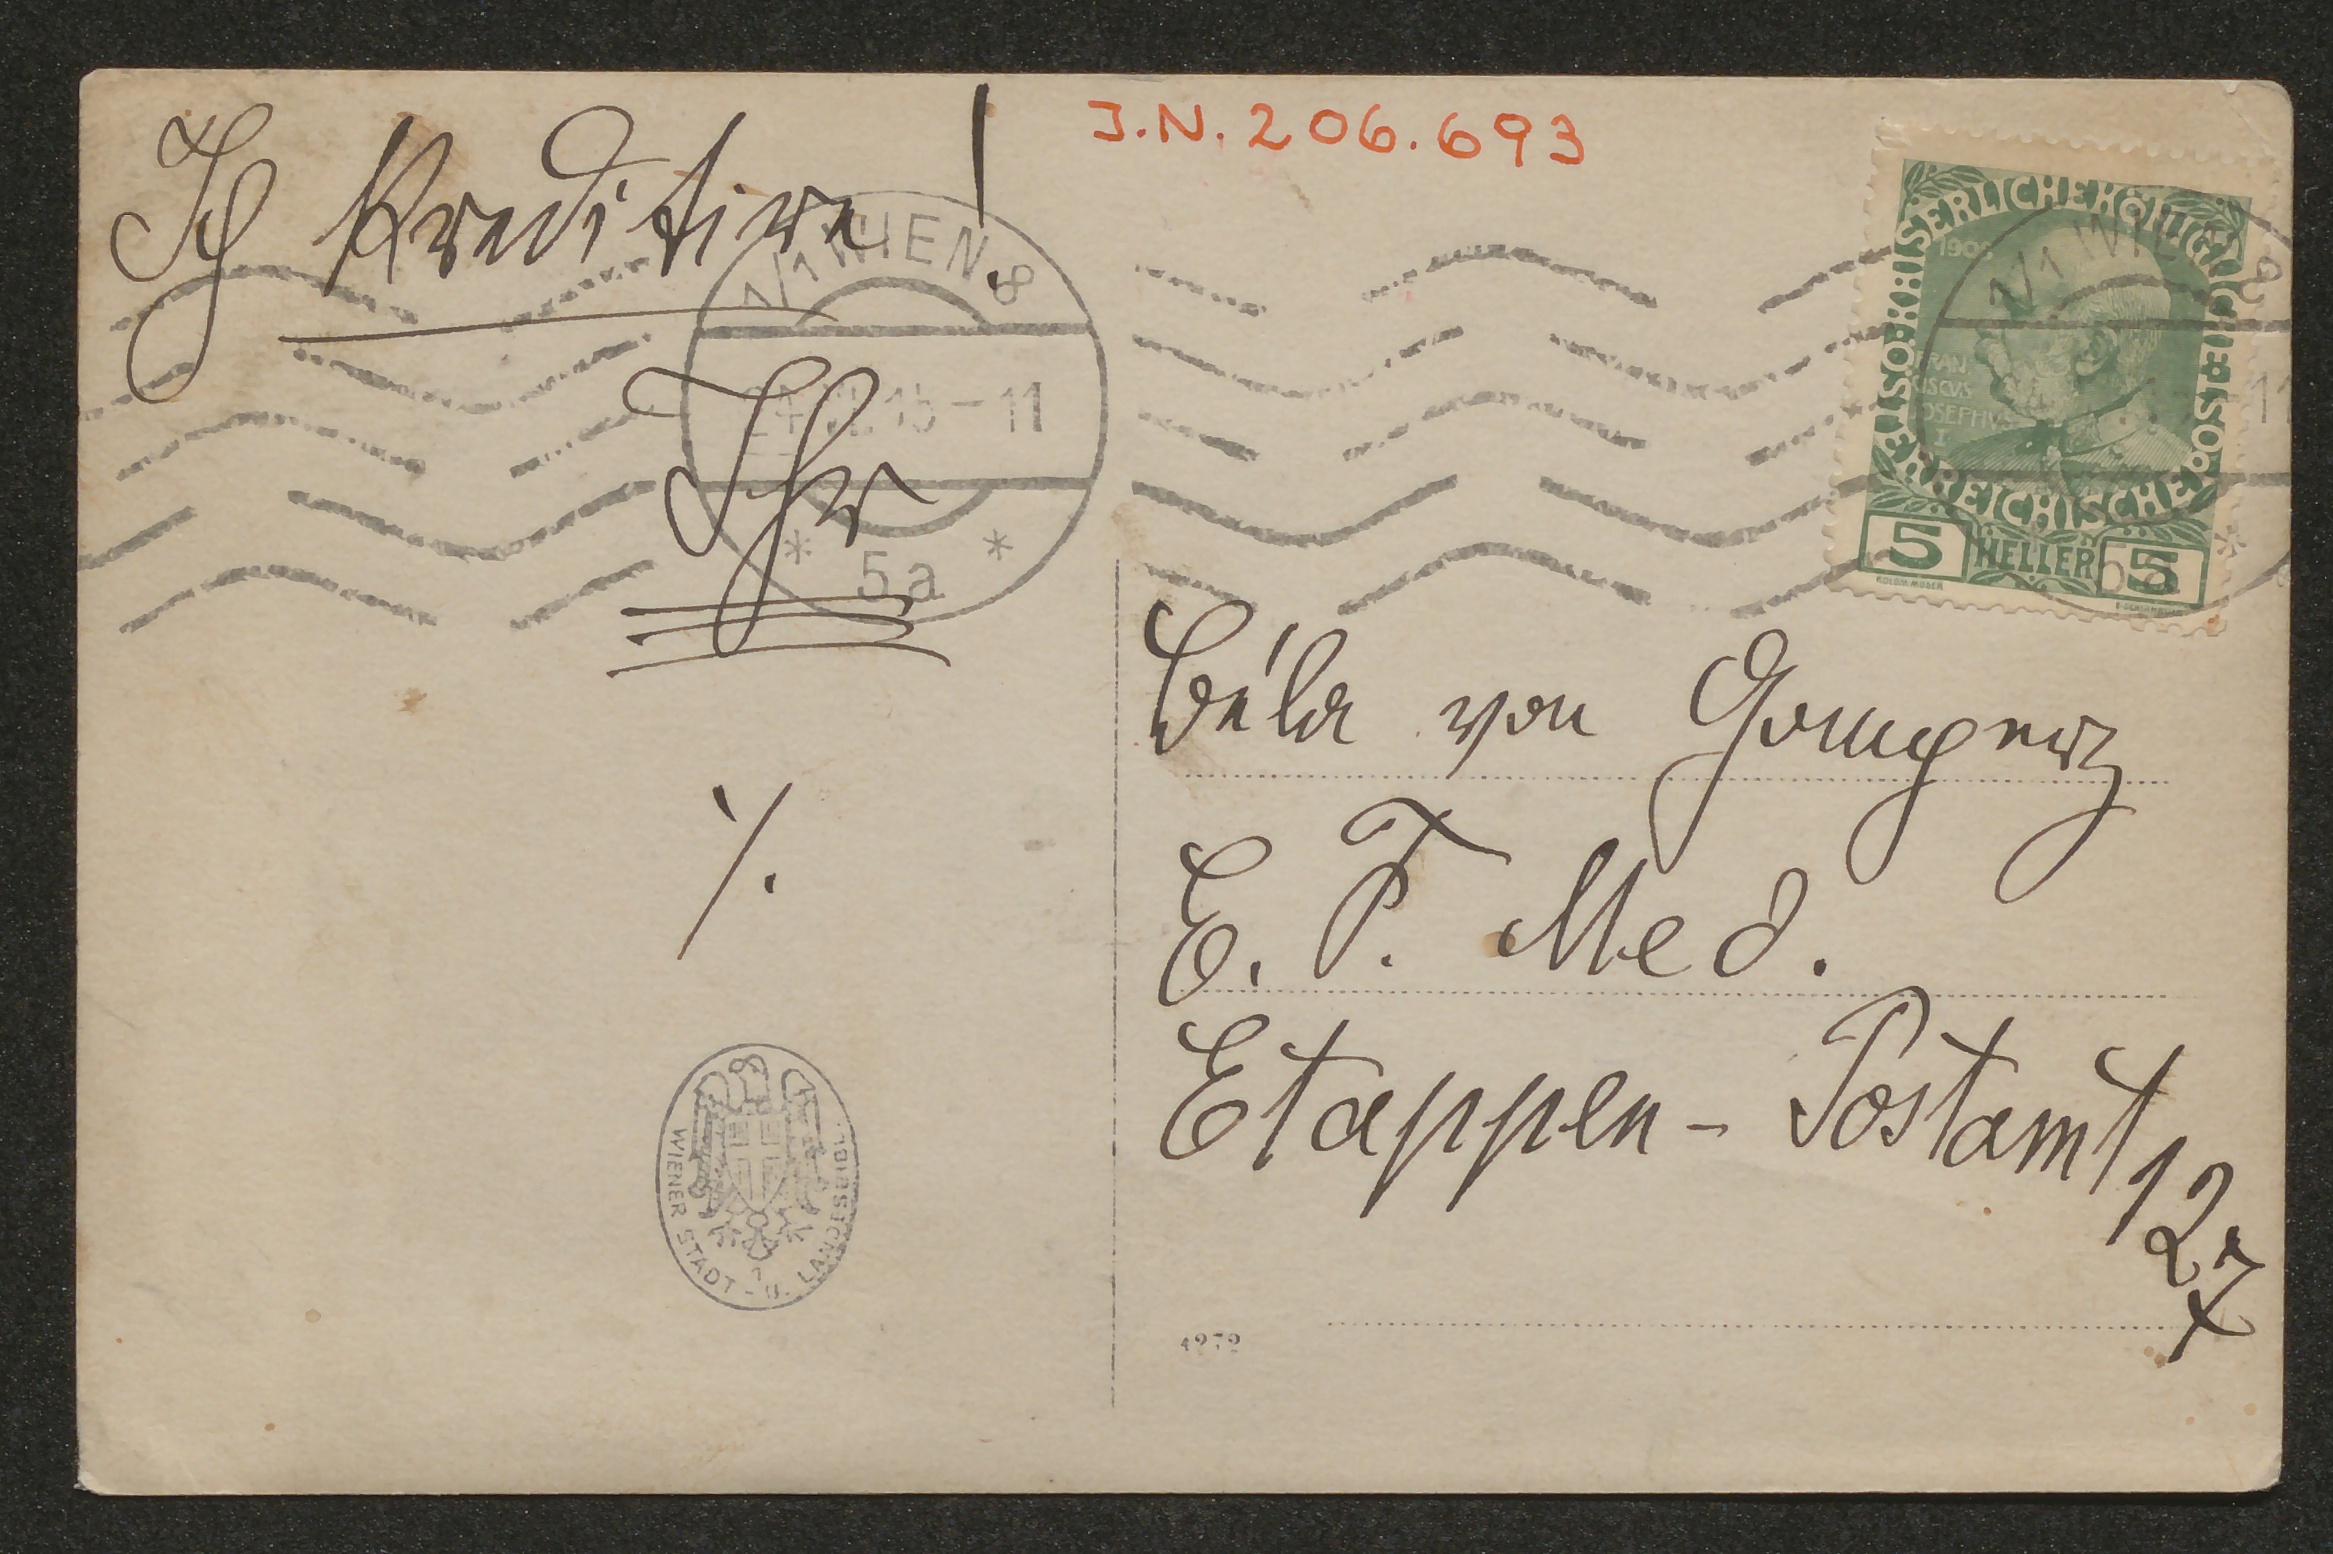 Ich kreditire!
Ihr
./.
J.N. 206.693
1/1 WIEN 8
15-11
* 5a *
KAISERLICHE KÖNIGLICHE
ÖSTERREICHISCHE POST
1908
FRAN
CISCVS
IOSEPHVS
I
5 HELLER 5
KOLOM. MOSER
Béla von Gomperz
E. F. Med.
Etappen-Postamt 127
WIENER STADT- U. LANDESBIBL.